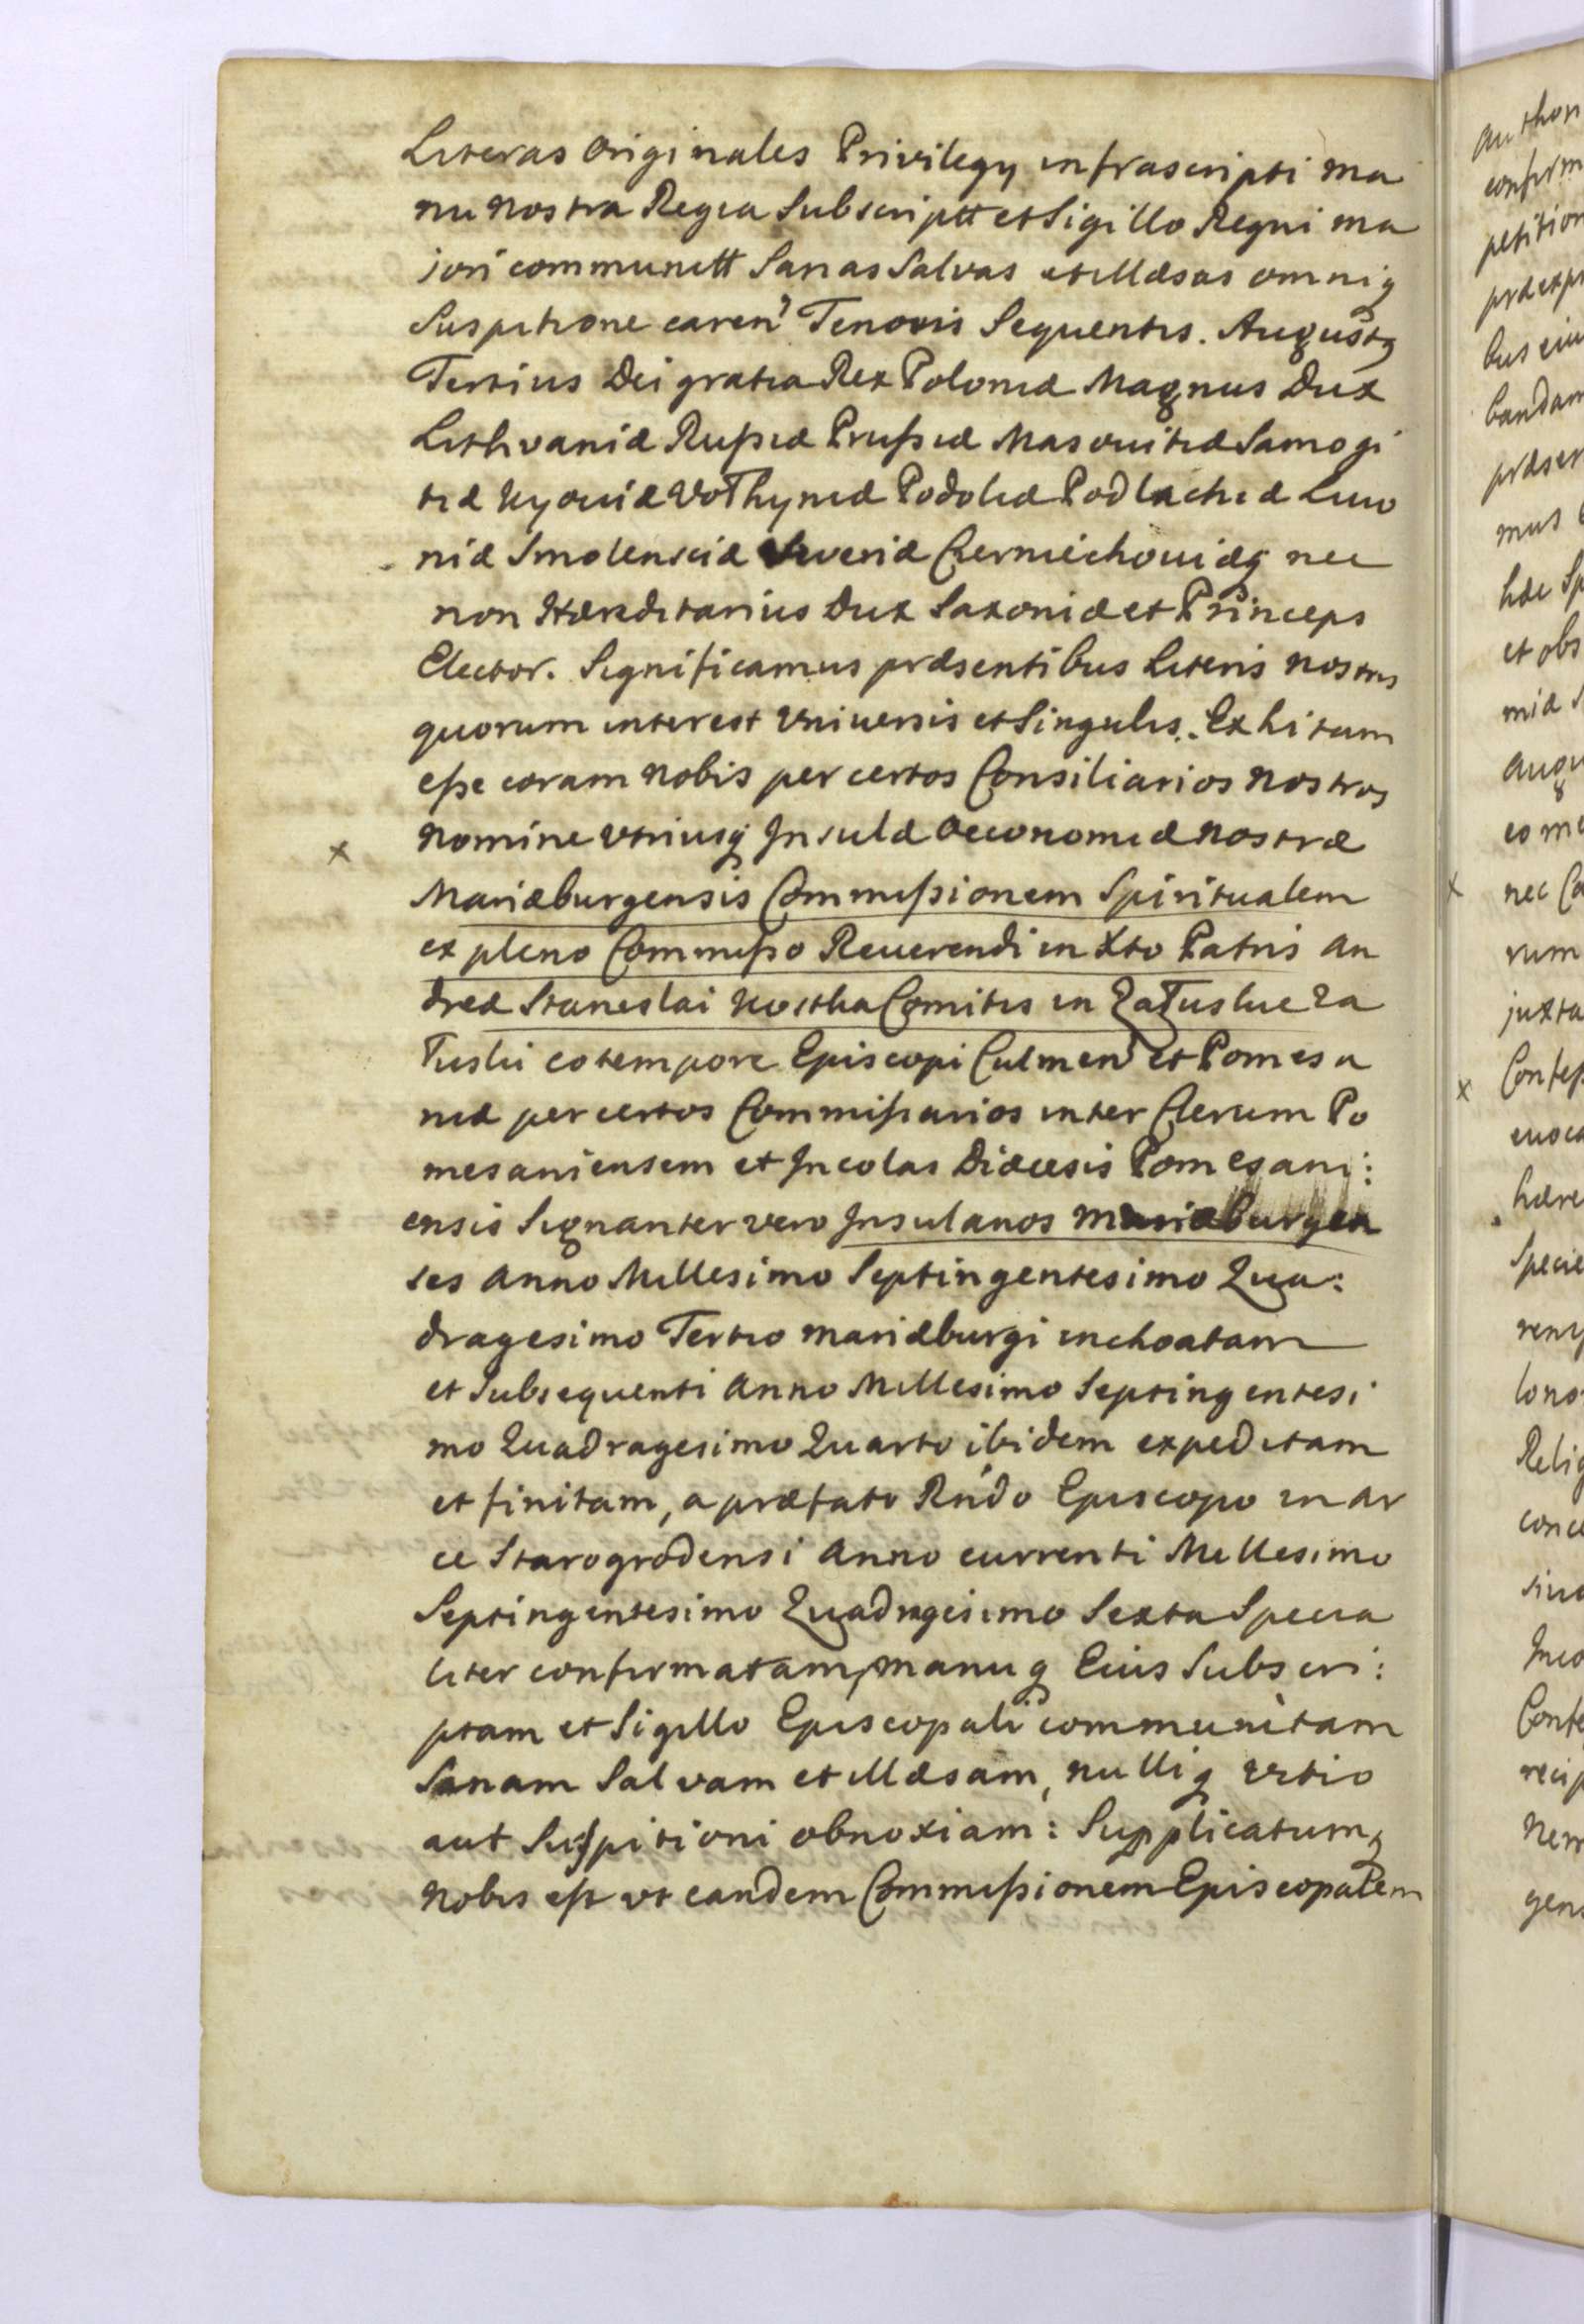 Literas Originales Privilegy infrascripti ma
nu nostra Regia Subscriptt et Sigillo Regni ma
iori communitt Sanas Salvas et illæsas omniq
Suspitione caren Tenoris Sequentis. Augustq
Tertius Dei gratia Rex Poloniæ Magnus Dux
Lithvaniæ Rußiæ Prußiæ Masouitiæ Samogi
tiæ Kyouiæ Volhyniæ Podoliæ Podlachiæ Liuo
niæ Smolensciæ Severiæ Czerniechouiæq nec
non Hæreditarius Dux Saxoniæ et Princeps
Elector. Significamus præsentibus Literis nostris
quorum interest Vniuersis et Singulis. Exhitum
eße coram nobis per certos Consiliarios nostros
x nomine vtriusq Insulæ Oeconomiæ nostræ
Mariæburgensis Commißionem Spiritualem
ex pleno Commißo Reuerendi in Xto Patris An
dreæ Stanislai Kostka Comitis in Zaluskie Za
luski eo tempore Episcopi Culmen et Pomesa
niæ per certos Commißarios inter Clerum Po
mesaniensem et Incolas Diæcesis Pomesani:
ensis Signanter vero Insulanos Mariæburgen
ses Anno Millesimo Septingentesimo Qua:
dragesimo Tertio Mariæburgi inchoatam
et Subsequenti Anno Millesimo Septingentesi
mo Quadragesimo Quarto ibidem expeditam
et finitam, a præfato Rndo Episcopo in Ar
ce Starogrodensi Anno currenti Millesimo
Septingentesimo Quadragesimo Sexto Specia
liter confirmatam, manuq Eius Subscri:
ptam et Sigillo Episcopali communitam
Sanam Salvam et illæsam, nulliq vitio
aut Suspitioni obnoxiam: Supplicatumq
nobis est vt eandem Commißionem Episcopalem